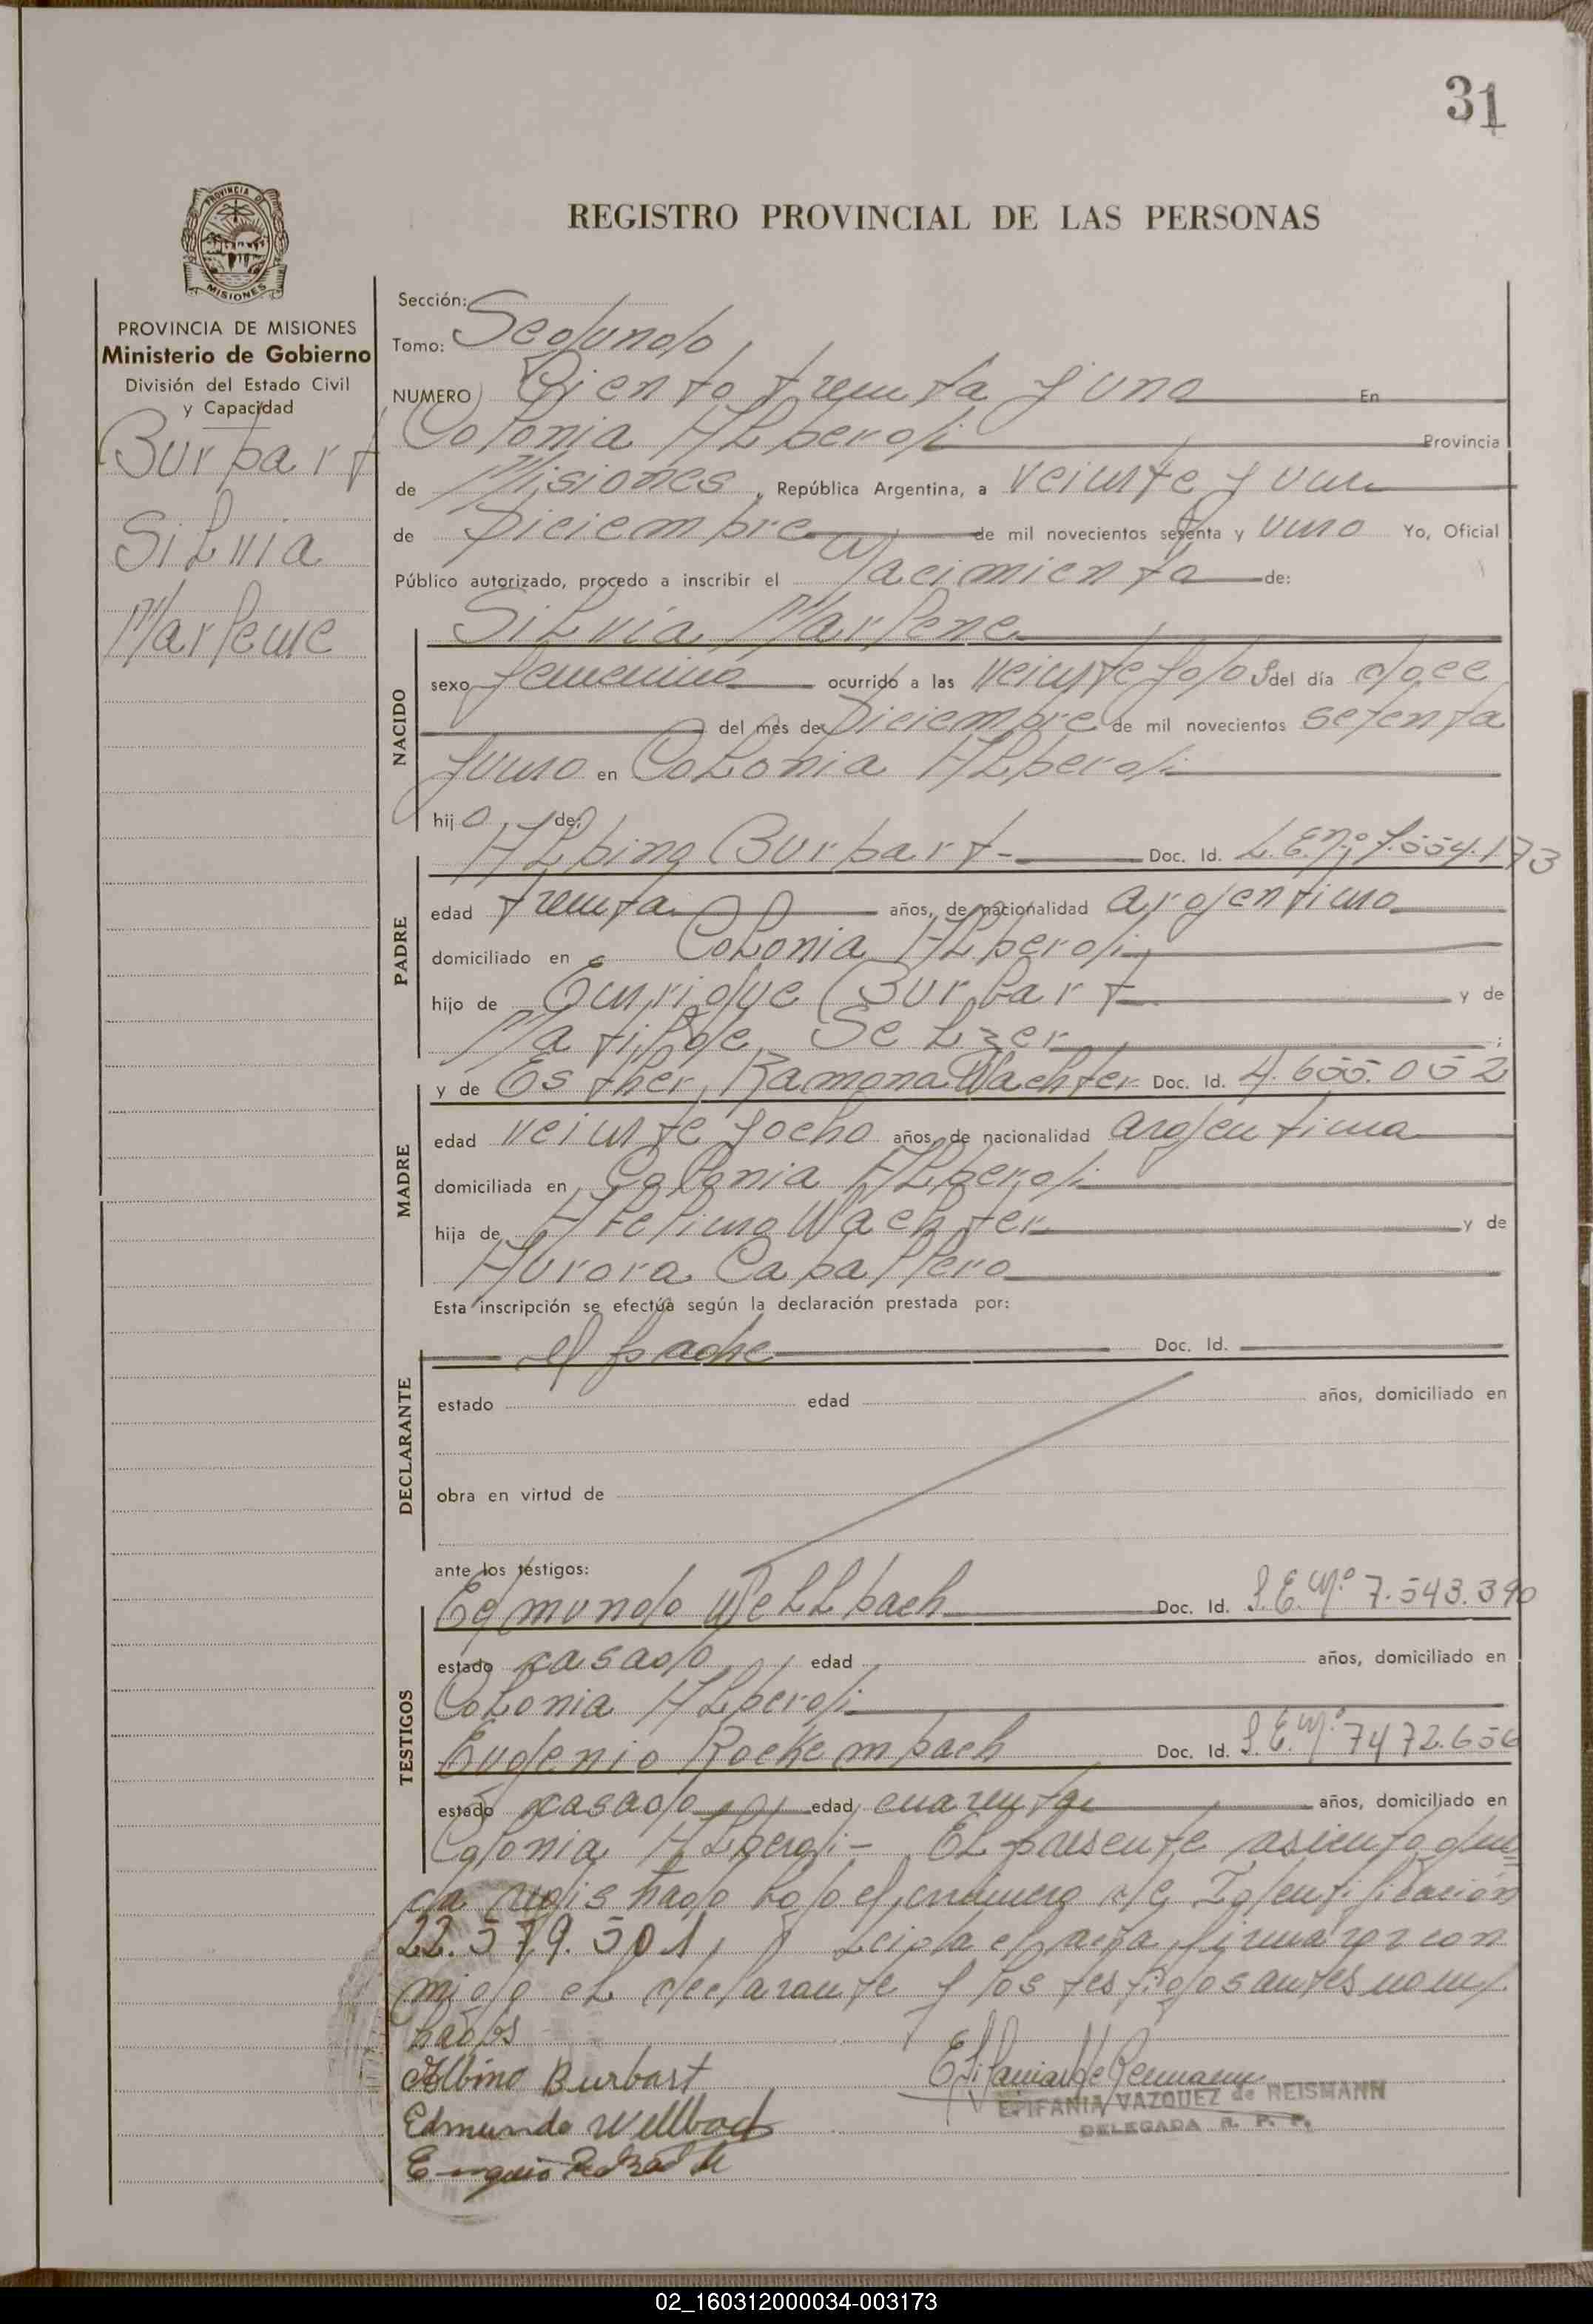 31
REGISTRO PROVINCIAL DE LAS PERSONAS
PROVINCIA DE
MISIONES
PROVINCIA DE MISIONES
Ministerio de Gobierno
División del Estado Civil
y Capacidad
Burbart
Silvia
Marlene
Sección:
Tomo: Segundo
NUMERO Ciento treinta y uno En
Colonia Alberdi Provincia
de Misiones, República Argentina, a veinte y uno
de Diciembre de mil novecientos setenta y uno Yo, Oficial
Público autorizado, procedo a inscribir el Nacimiento de:
NACIDO
Silvia Marlene
sexo femenino ocurrido a las veinte y dos del día doce
del mes de Diciembre de mil novecientos setenta
y uno en Colonia Alberdi
hija de:
PADRE
Albino Burbart- Doc. Id. L.E.nº 7.554.173
edad treinta años, de nacionalidad argentino
domiciliado en Colonia Alberdi
hijo de Enrique Burbart y de
Matilde Selzer;
MADRE
y de Esther, Ramona Wachter Doc. Id. 4.655.052
edad veinte y ocho años, de nacionalidad argentina
domiciliada en Colonia Alberdi
hija de Avelino Wachter y de
Aurora Caballero
Esta inscripción se efectúa según la declaración prestada por:
DECLARANTE
el padre Doc. Id.
estado edad años, domiciliado en
obra en virtud de
ante los testigos:
TESTIGOS
Edmundo Wellbach Doc. Id. L.E.Nº 7.543.390
estado casado edad años, domiciliado en
Colonia Alberdi
Eugenio Rockembach Doc. Id. L.E.Nº 7472.656
estado casado edad cuarenta años, domiciliado en
Colonia Alberdi- El presente asiento que=
da registrado bajo el número de Identificación
22.579.501, y Leida el acta firman por con
migo el declarante y los testigos antes nom
bados
Albino Burbart
Edmundo Wellbach
EPIFANIA VAZQUEZ de REISMANN
DELEGADA R. P. P.
02_160312000034-003173